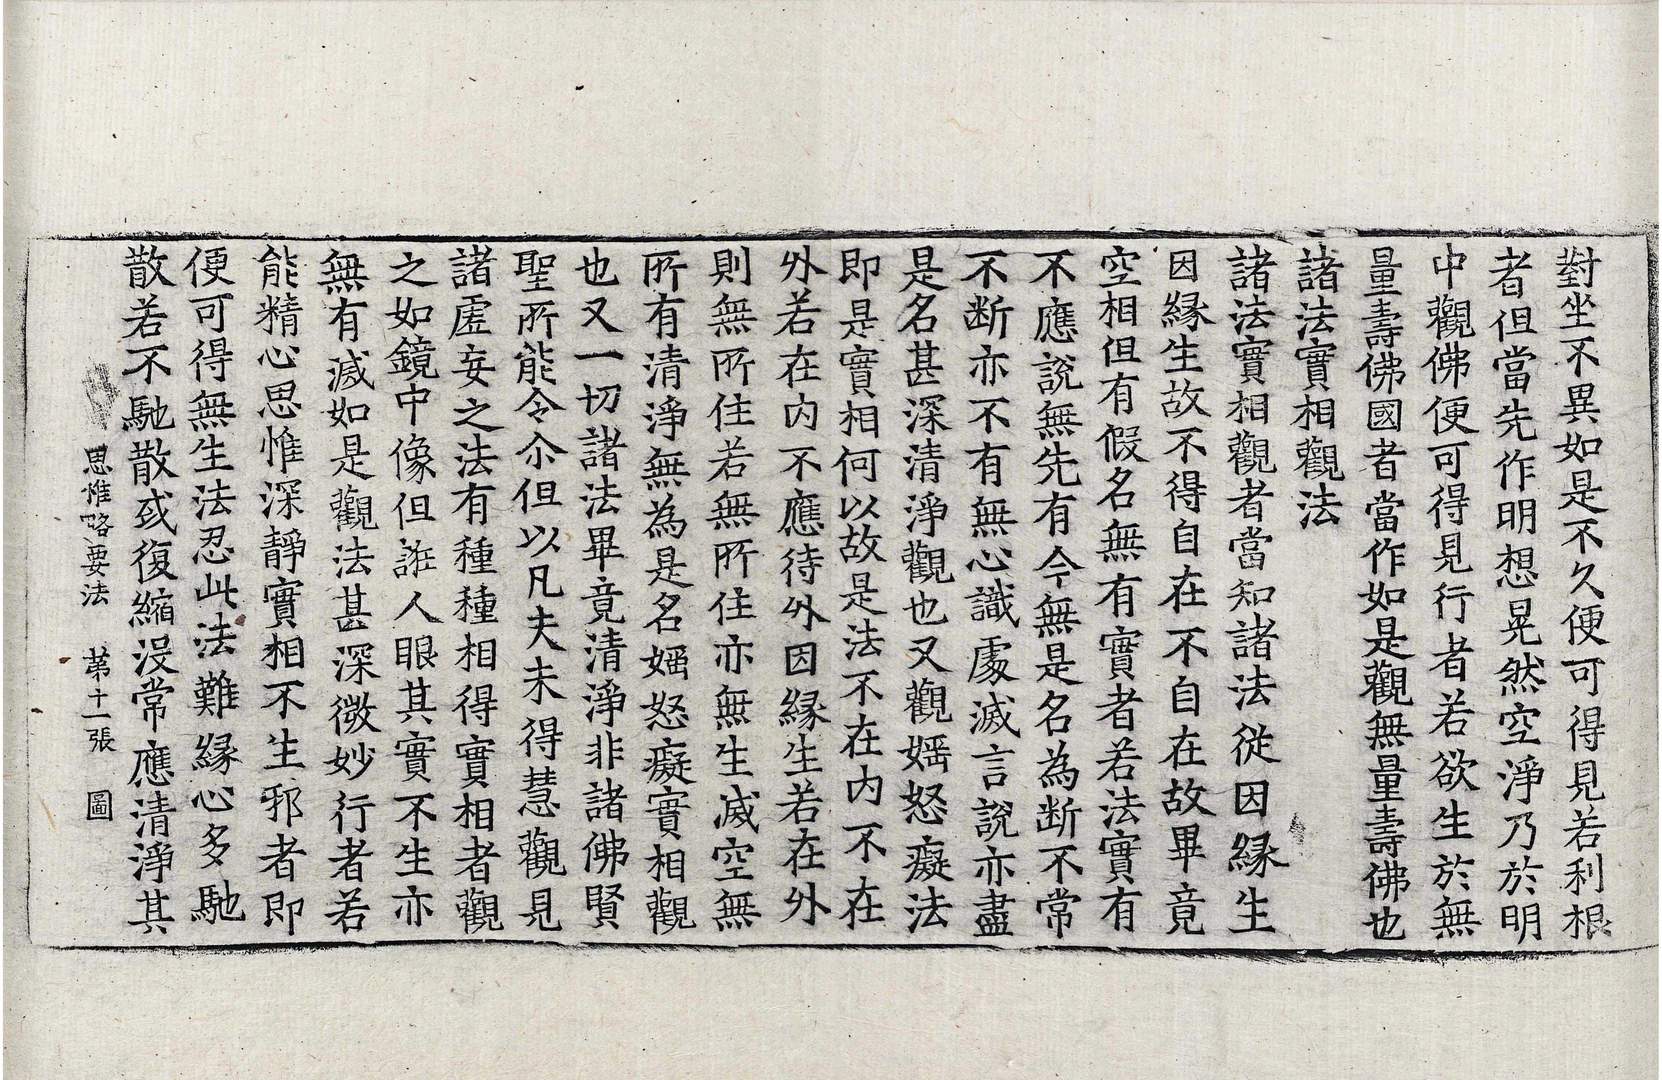 對坐不異如是不久便可得見若利根
者但當先作明想晃然空淨乃於明
中觀佛便可得見行者若欲生於無
量壽佛國者當作如是觀無量壽佛也
諸法實相觀法
諸法實相觀者當知諸法從因緣生
因緣生故不得自在不自在故畢竟
空相但有假名無有實者若法實有
不應說無先有今無是名為断不常
不断亦不有無心識處滅言說亦盡
是名甚深清淨觀也又觀婬怒癡法
即是實相何以故是法不在内不在
外若在内不應待外因緣生若在外
則無所住若無所住亦無生滅空無
所有清淨無為是名婬怒癡實相觀
也又一切諸法畢竟清淨非諸佛賢
聖所能令尒但以凡夫未得慧觀見
諸虛妄之法有種種相得實相者觀
之如鏡中像但誑人眼其實不生亦
無有滅如是觀法甚深微妙行者若
能精心思惟深靜實相不生邪者即
便可得無生法忍此法難緣心多馳
散若不馳散或復縮没常應清淨其
思惟略要法 第十一張 圖